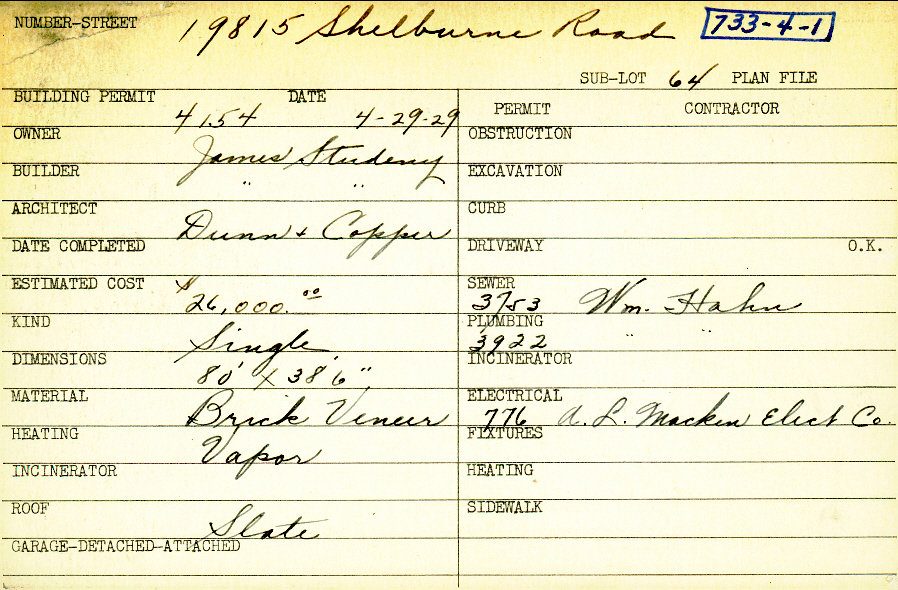 NUMBER-STREET 19815 Shelburne Road 733-4-1
SUB-LOT 64 PLAN FILE
BUILDING PERMIT 4154 DATE 4-29-29
PERMIT CONTRACTOR
OWNER James Studeny
OBSTRUCTION
BUILDER " "
EXCAVATION
ARCHITECT Dunn + Copper
CURB
DATE COMPLETED
DRIVEWAY O.K.
ESTIMATED COST $26,000.00
SEWER 3753 Wm. Hahn
KIND Single
PLUMBING 3922 " "
DIMENSIONS 80' X 38'6"
INCINERATOR
MATERIAL Brick Veneer
ELECTRICAL 776 A. L. Macken Elect Co.
HEATING Vapor
FIXTURES
INCINERATOR
HEATING
ROOF Slate
SIDEWALK
GARAGE-DETACHED-ATTACHED